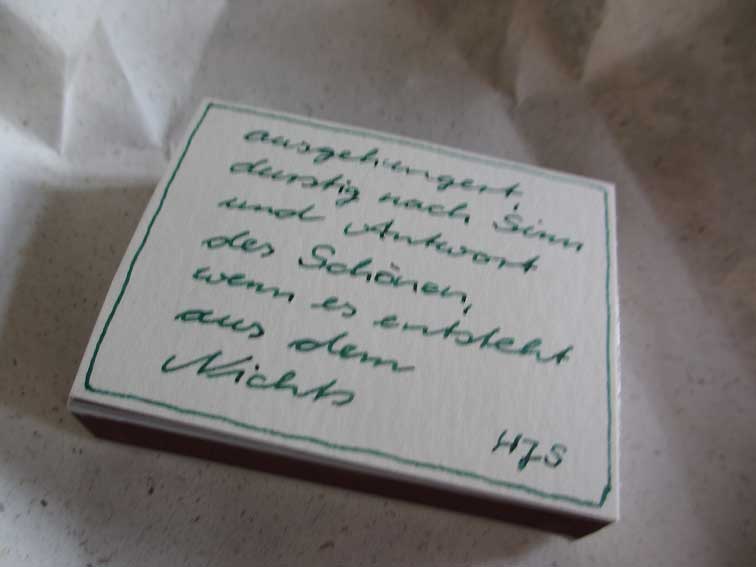 ausgehungert,
durstig nach Sinn
und Antwort
des Schönen,
wenn es entsteht
aus dem
Nichts
HJS